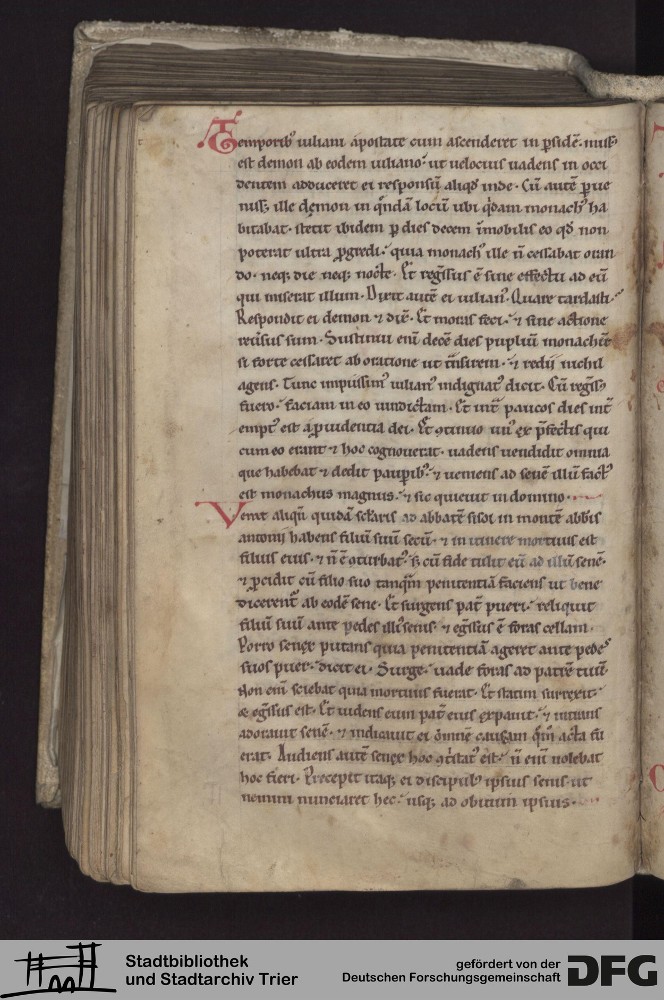 Temporib᷒ iuliani apostate cum ascenderet in ꝑsidē. miss᷒
est demon ab eodem iuliano. ut uelocius uadens in occi
dentem adduceret ei responsū aliqd inde. Cū autē ꝑue
niss; ille demon in qndā locū ubi qdam monach᷒ ha
bitabat. stetit ibidem ꝑ dies decem īmobilis eo qd non
poterat ultra ꝓgredi. quia monach᷒ ille n̄ cessabat oran
do. neq; die neq; nocte. Et regssus ē sine effectu ad eū
qui miserat illum. Dixit autē ei iulian᷒. Quare tardasti.
Respondit ei demon ⁊ dix̄. Et moras feci. ⁊ sine actione
reūsus sum. Sustinui enī decē dies pupliū monachū
si forte cessaret ab oratione ut tnsirem. ⁊ redii nichil
agens. Tunc impiissim᷒ iulian᷒ indignat᷒ dicit. Cū regss᷒
fuero. faciam in eo uindictam. Et int̄ paucos dies int̄
empt᷒ est a ꝓuidentia dei. Et ꝯtinuo un᷒ ex p̄fectis qui
cum eo erant ⁊ hoc cognouerat. uadens uendidit omnia
que habebat ⁊ dedit paupib᷒. ⁊ ueniens ad senē illū fact᷒
est monachus magnus. ⁊ sic quieuit in domino.
Venit aliqn̄ quidā sclaris ad abbatē sisoi in montē abbis
antonii habens filiū suū secū. ⁊ in itinere mortuus est
filius eius. ⁊ n̄ ē ꝯturbat᷒. s; cū fide tulit eū ad illū senē.
⁊ ꝓcidit cū filio suo tanqm̄ penitentiā faciens ut bene
dicerent᷒ ab eodē sene. Et surgens pat̄ pueri. reliquit
filiū suū ante pedes illi᷒ senis. ⁊ egssus ē foras cellam.
Porro senex putans quia penitentiā ageret ante pedes
suos puer. dicit ei. Surge. uade foras ad patrē tuū.
Non enī sciebat quia mortuus fuerat. Et statim surrexit.
⁊ egssus est. Et uidens eum pat̄ eius expauit. ⁊ intrans
adorauit senē. ⁊ indicauit ei omnē causam qm̄ acta fu
erat. Audiens autē senex hoc ꝯtstat᷒ est. n̄ enī uolebat
hoc fieri. Precepit itaq; ei discipul᷒ ipsius senis. ut
nemini nunciaret hec. usq; ad obitum ipsius.
Stadtbibliothek
und Stadtarchiv Trier
gefördert von der
Deutschen Forschungsgemeinschaft
DFG